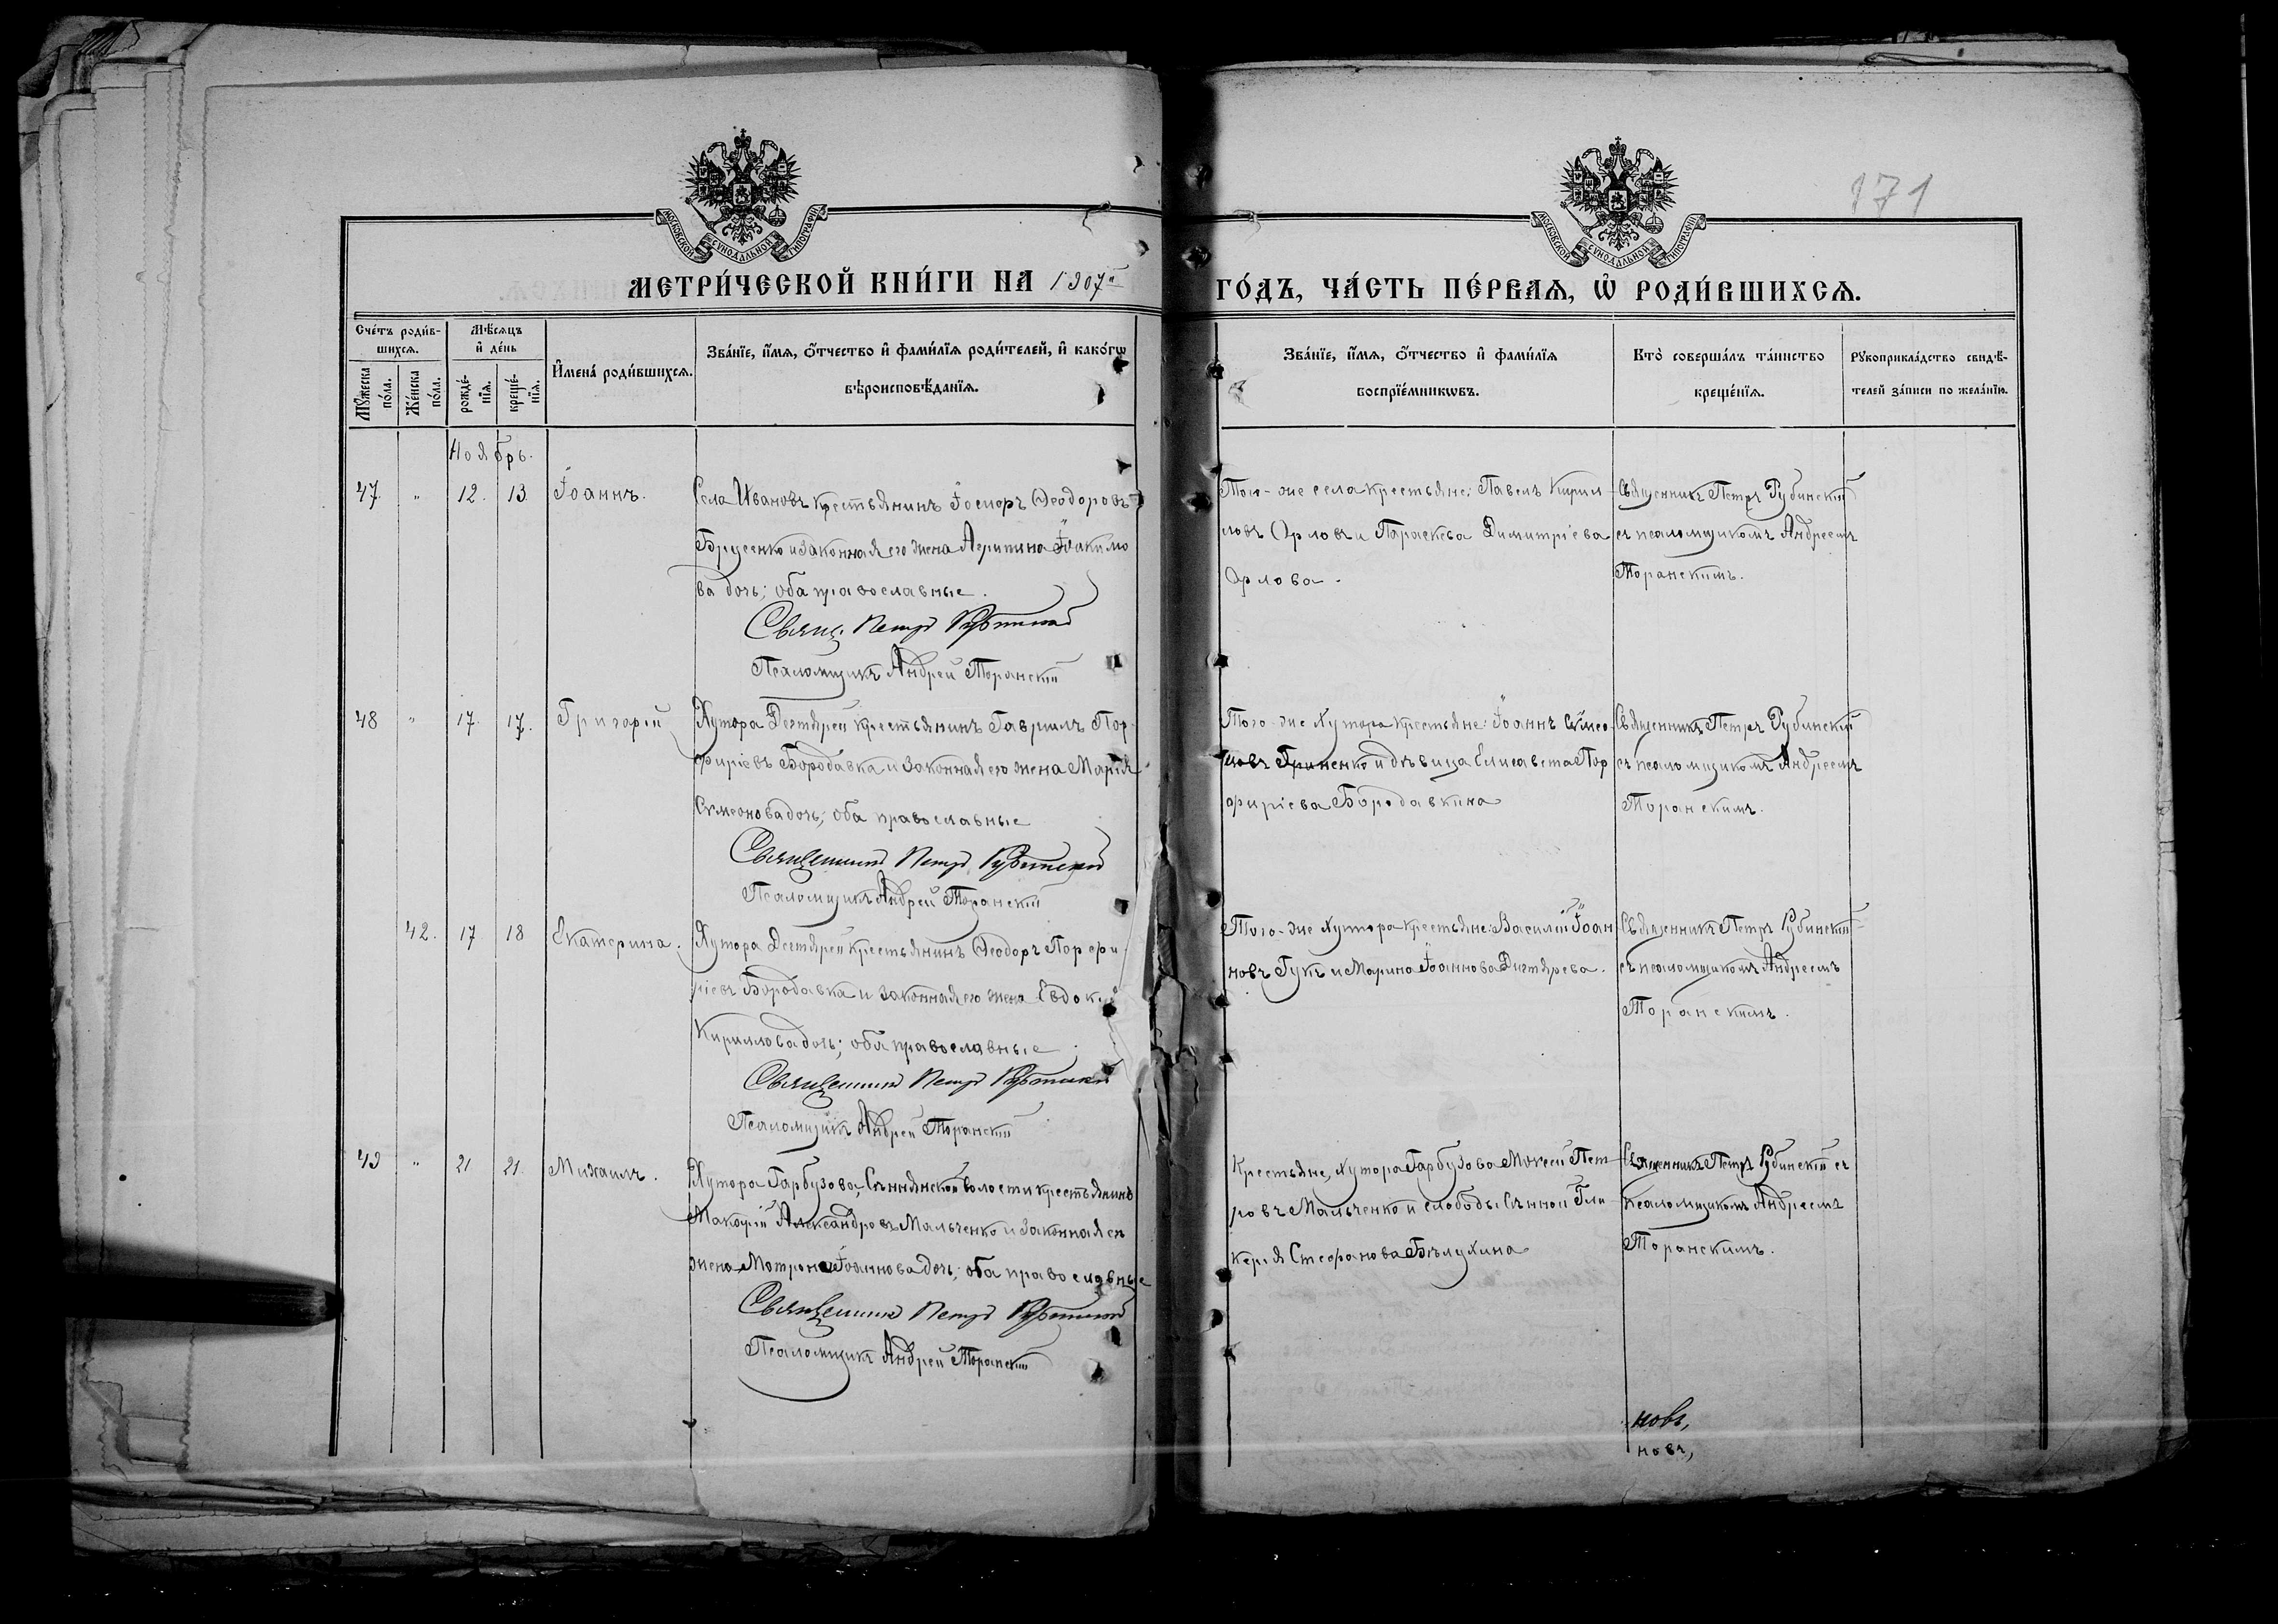 171
МОСКОВСКОЙ СУНОДАЛЬНОЙ ТИПОГРАФІИ
МОСКОВСКОЙ СУНОДАЛЬНОЙ ТИПОГРАФІИ
МЕТРИ́ЧЕСКОЙ КНИ́ГИ НА 1907й ГО́ДЪ, ЧА́СТЬ ПЕ́РВАѦ, Ѡ҆ РОДИ́ВШИХСѦ.
Сче́тъ роди́в-
шихсѧ.
Мꙋ́жеска по́ла.
Же́нска по́ла.
Мѣ́сѧцъ
и҆ де́нь
рожде́-
нїѧ.
креще́-
нїѧ.
И҆мена̀ роди́вшихсѧ.
Зва́нїе, и҆́мѧ, ѻ҆́тчество и҆ фами́лїѧ роди́телей, и҆ како́гѡ
вѣроисповѣ́данїѧ.
Зва́нїе, и҆́мѧ, ѻ҆́тчество и҆ фами́лїѧ
воспрїе́мникѡвъ.
Кто̀ соверша́лъ та́инство
креще́нїѧ.
Рꙋкоприкла́дство свидѣ́-
телей за́писи по жела́нїю.
Ноябрь.
47. " 12. 13. Іоаннъ.
Села Ивановъ крестьянинъ Ѳеодоровъ
Брусенко и законная его жена Агрипина Іоакимо
ва дочь; оба православные.
Свящ. Петръ Рубинскій
Псаломщикъ Андрей Торанскій
Того-же села крестьяне: Павелъ Кирил-
ловъ Орловъ и Параскева Димитріева
Орлова.
Священникъ Петръ Рубинскій
съ псаломщикомъ Андреемъ
Торанскимъ.
48 " 17. 17. Григорій
Хутора Дегтярей крестьянинъ Гавриилъ Пор-
фиріевъ Бородавка и законная его жена Марія
Симеонова дочь; оба православные
Священникъ Петръ Рубинскій
Псаломщикъ Андрей Торанскій
Того-же Хутора крестьяне: Іоаннъ Симео-
новъ Гриненко и дѣвица Елисавета Пор
фиріева Бородавкина
Священникъ Петръ Рубинскій
съ псаломщикомъ Андреемъ
Торанскимъ.
42. 17 18 Екатерина.
Хутора Дегтярей крестьянинъ Ѳеодоръ Порфи-
ріевъ Бородавка и законная его жена Евдокія
Кириллова дочь; оба православные
Священникъ Петръ Рубинскій
Псаломщикъ Андрей Торанскій
Того-же Хутора крестьяне: Василій Іоан
новъ Гукъ и Марина Іоаннова Дегтярева.
Священникъ Петръ Рубинскій
съ псаломщикомъ Андреемъ
Торанскимъ.
49 " 21 21. Михаилъ.
Хутора Гарбузова, Сѣннянской волости крестьянинъ
Макарій Александровъ Мальченко и законная его
жена Мотрона Іоаннова дочь; оба православные
Священникъ Петръ Рубинскій
Псаломщикъ Андрей Торанскій
Крестьяне, хутора Гарбузова Моисей Пет-
ровъ Мальченко и слободы Сѣнной Гли
керія Стефанова Бѣлухина
Священникъ Петръ Рубинскій съ
псаломщикомъ Андреемъ
Торанскимъ.
новъ,
новъ,